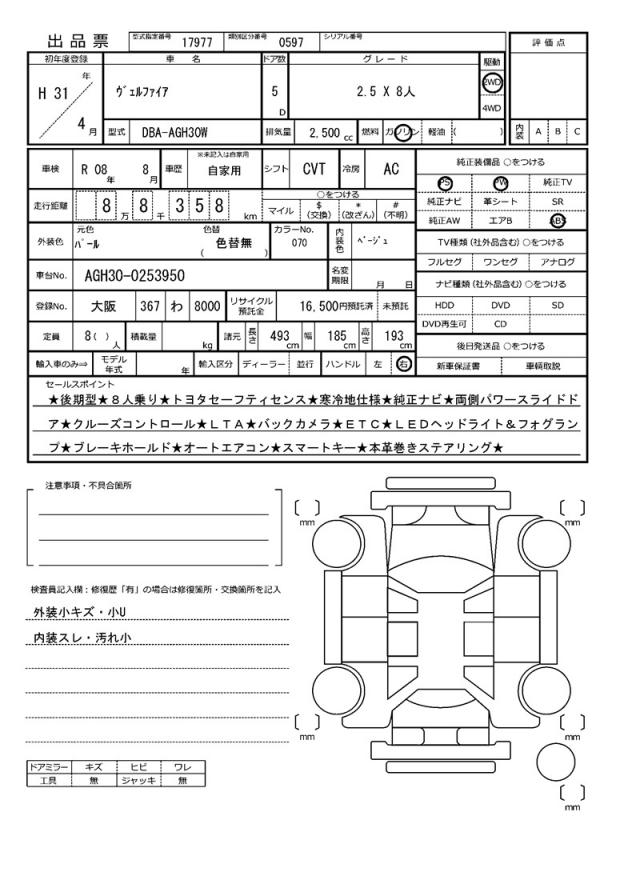 出品票 型式指定番号 17977 類別区分番号 0597 シリアル番号
評価点
初年度登録 車名 ドア数 グレード 駆動
H 31 年 4 月 ヴェルファイア 5 D 2.5 X 8人 2WD 4WD
型式 DBA-AGH30W 排気量 2,500 cc 燃料 ガソリン 軽油 ( ) 内装 A B C
車検 R 08 年 8 月 車歴 ※未記入は自家用 自家用 シフト CVT 冷房 AC
純正装備品 ○をつける
PS PW 純正TV
走行距離 8 万 8 千 3 5 8 km ○をつける マイル $ (交換) * (改ざん) # (不明)
純正ナビ 革シート SR
純正AW エアB ABS
外装色 元色 パール 色替 色替無 ( ) カラーNo. 070 内装色 ベージュ
TV種類 (社外品含む) ○をつける
フルセグ ワンセグ アナログ
車台No. AGH30-0253950 名変期限 月 日
ナビ種類 (社外品含む) ○をつける
登録No. 大阪 367 わ 8000 リサイクル預託金 16,500円預託済 未預託
HDD DVD SD
DVD再生可 CD
定員 8 ( ) 人 積載量 kg 諸元 長さ 493 cm 幅 185 cm 高さ 193 cm
後日発送品 ○をつける
輸入車のみ⇒ モデル年式 年 輸入区分 ディーラー 並行 ハンドル 左 右
新車保証書 車輌取説
セールスポイント
★後期型★８人乗り★トヨタセーフティセンス★寒冷地仕様★純正ナビ★両側パワースライドド
ア★クルーズコントロール★ＬＴＡ★バックカメラ★ＥＴＣ★ＬＥＤヘッドライト＆フォグラン
プ★ブレーキホールド★オートエアコン★スマートキー★本革巻きステアリング★
注意事項・不具合箇所
mm mm
検査員記入欄：修復歴「有」の場合は修復箇所・交換箇所を記入
外装小キズ・小U
内装スレ・汚れ小
mm mm
ドアミラー キズ ヒビ ワレ
工具 無 ジャッキ 無
mm